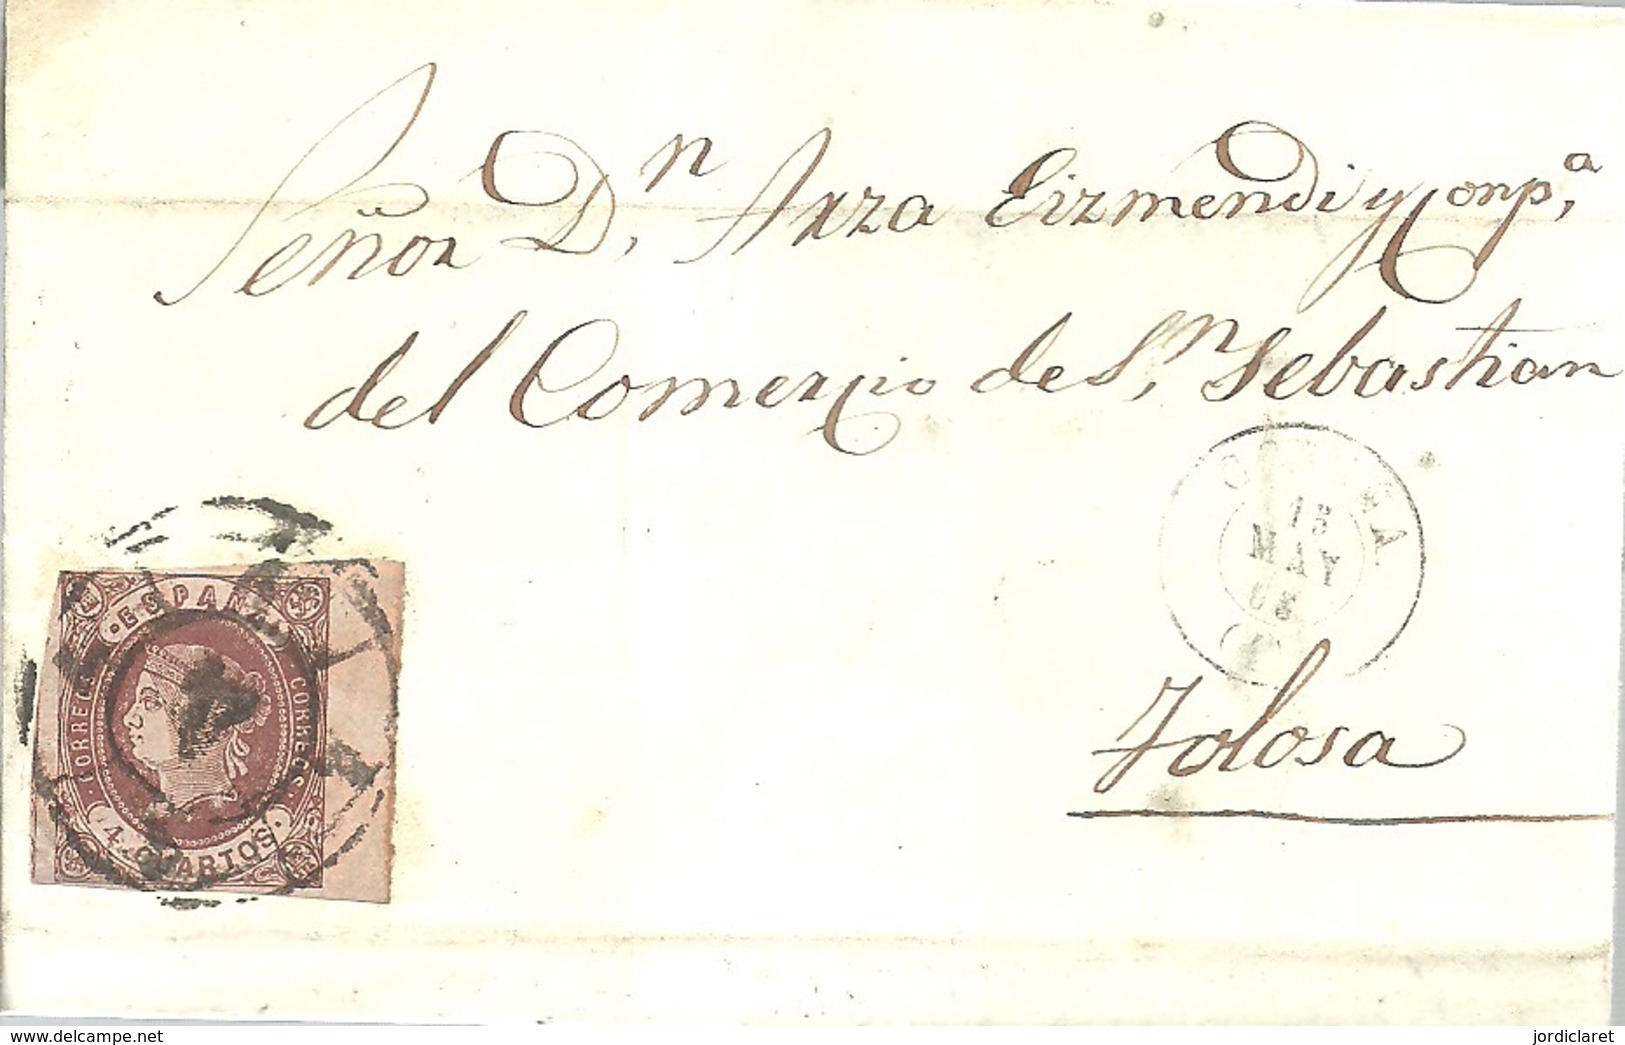 Señor D.n Arza Eizmendi y Conp.a
del Comercio de S.n Sebastian
15
MAY
63
Tolosa
ESPAÑA
CORREOS
CORREOS
4 CUARTOS
delcampe.net
jordiclaret